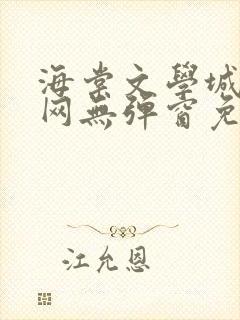 海棠文學城
网無彈窗免
江允恩